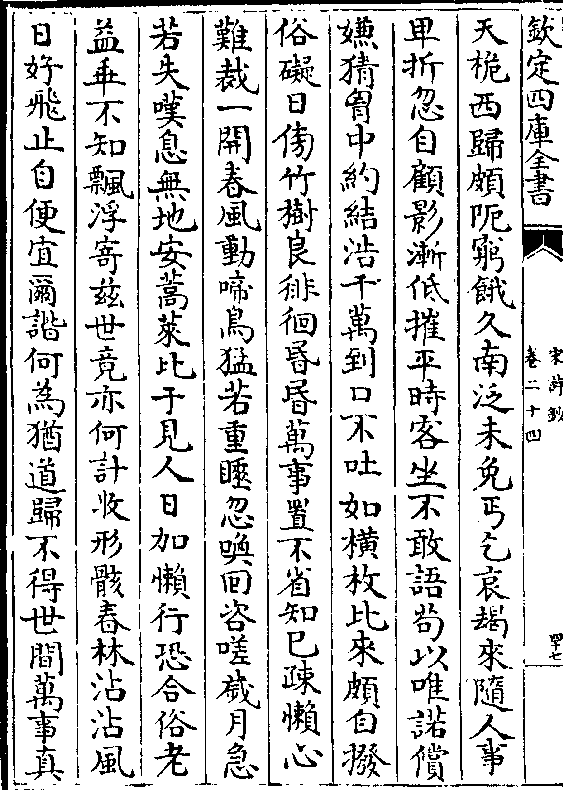 欽定四庫全書
宋詩鈔
卷二十四
四十七
天桅西歸頗阨窮餓久南泛未免丐乞哀朅來隨人事
卑折忽自顧影漸低摧平時客坐不敢語苟以唯諾償
嫌猜胷中約結浩千萬到口不吐如橫枚比來頗自撥
俗礙日傍竹樹良徘徊昬昬萬事置不省知已疎懶心
難裁一開春風動啼鳥猛若重瞌忽喚回咨嗟歲月急
若失嘆息無地安蒿萊比于見人日加懶行恐合俗老
益乖不知飄浮寄兹世竟亦何計收形骸春林沾沾風
日好飛止自便宜爾諧何為猶道歸不得世間萬事真